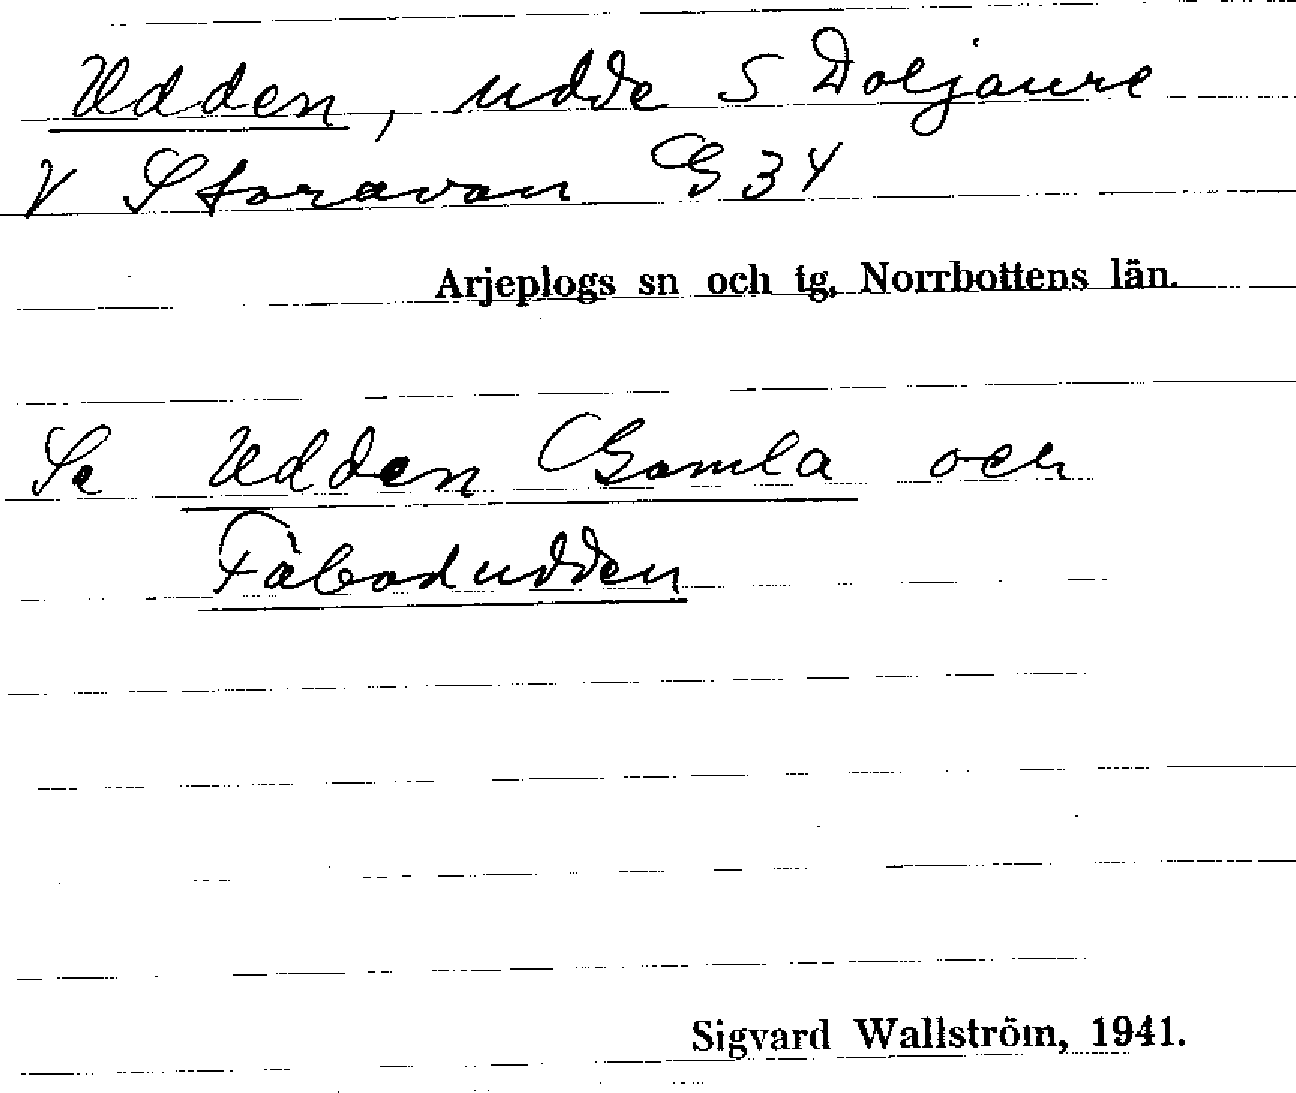 Udden, udde S Doljaure
V Storavan G 34
Arjeplogs sn och tg, Norrbottens län.
Se Udden Gamla och
Fäbodudden
Sigvard Wallström, 1941.